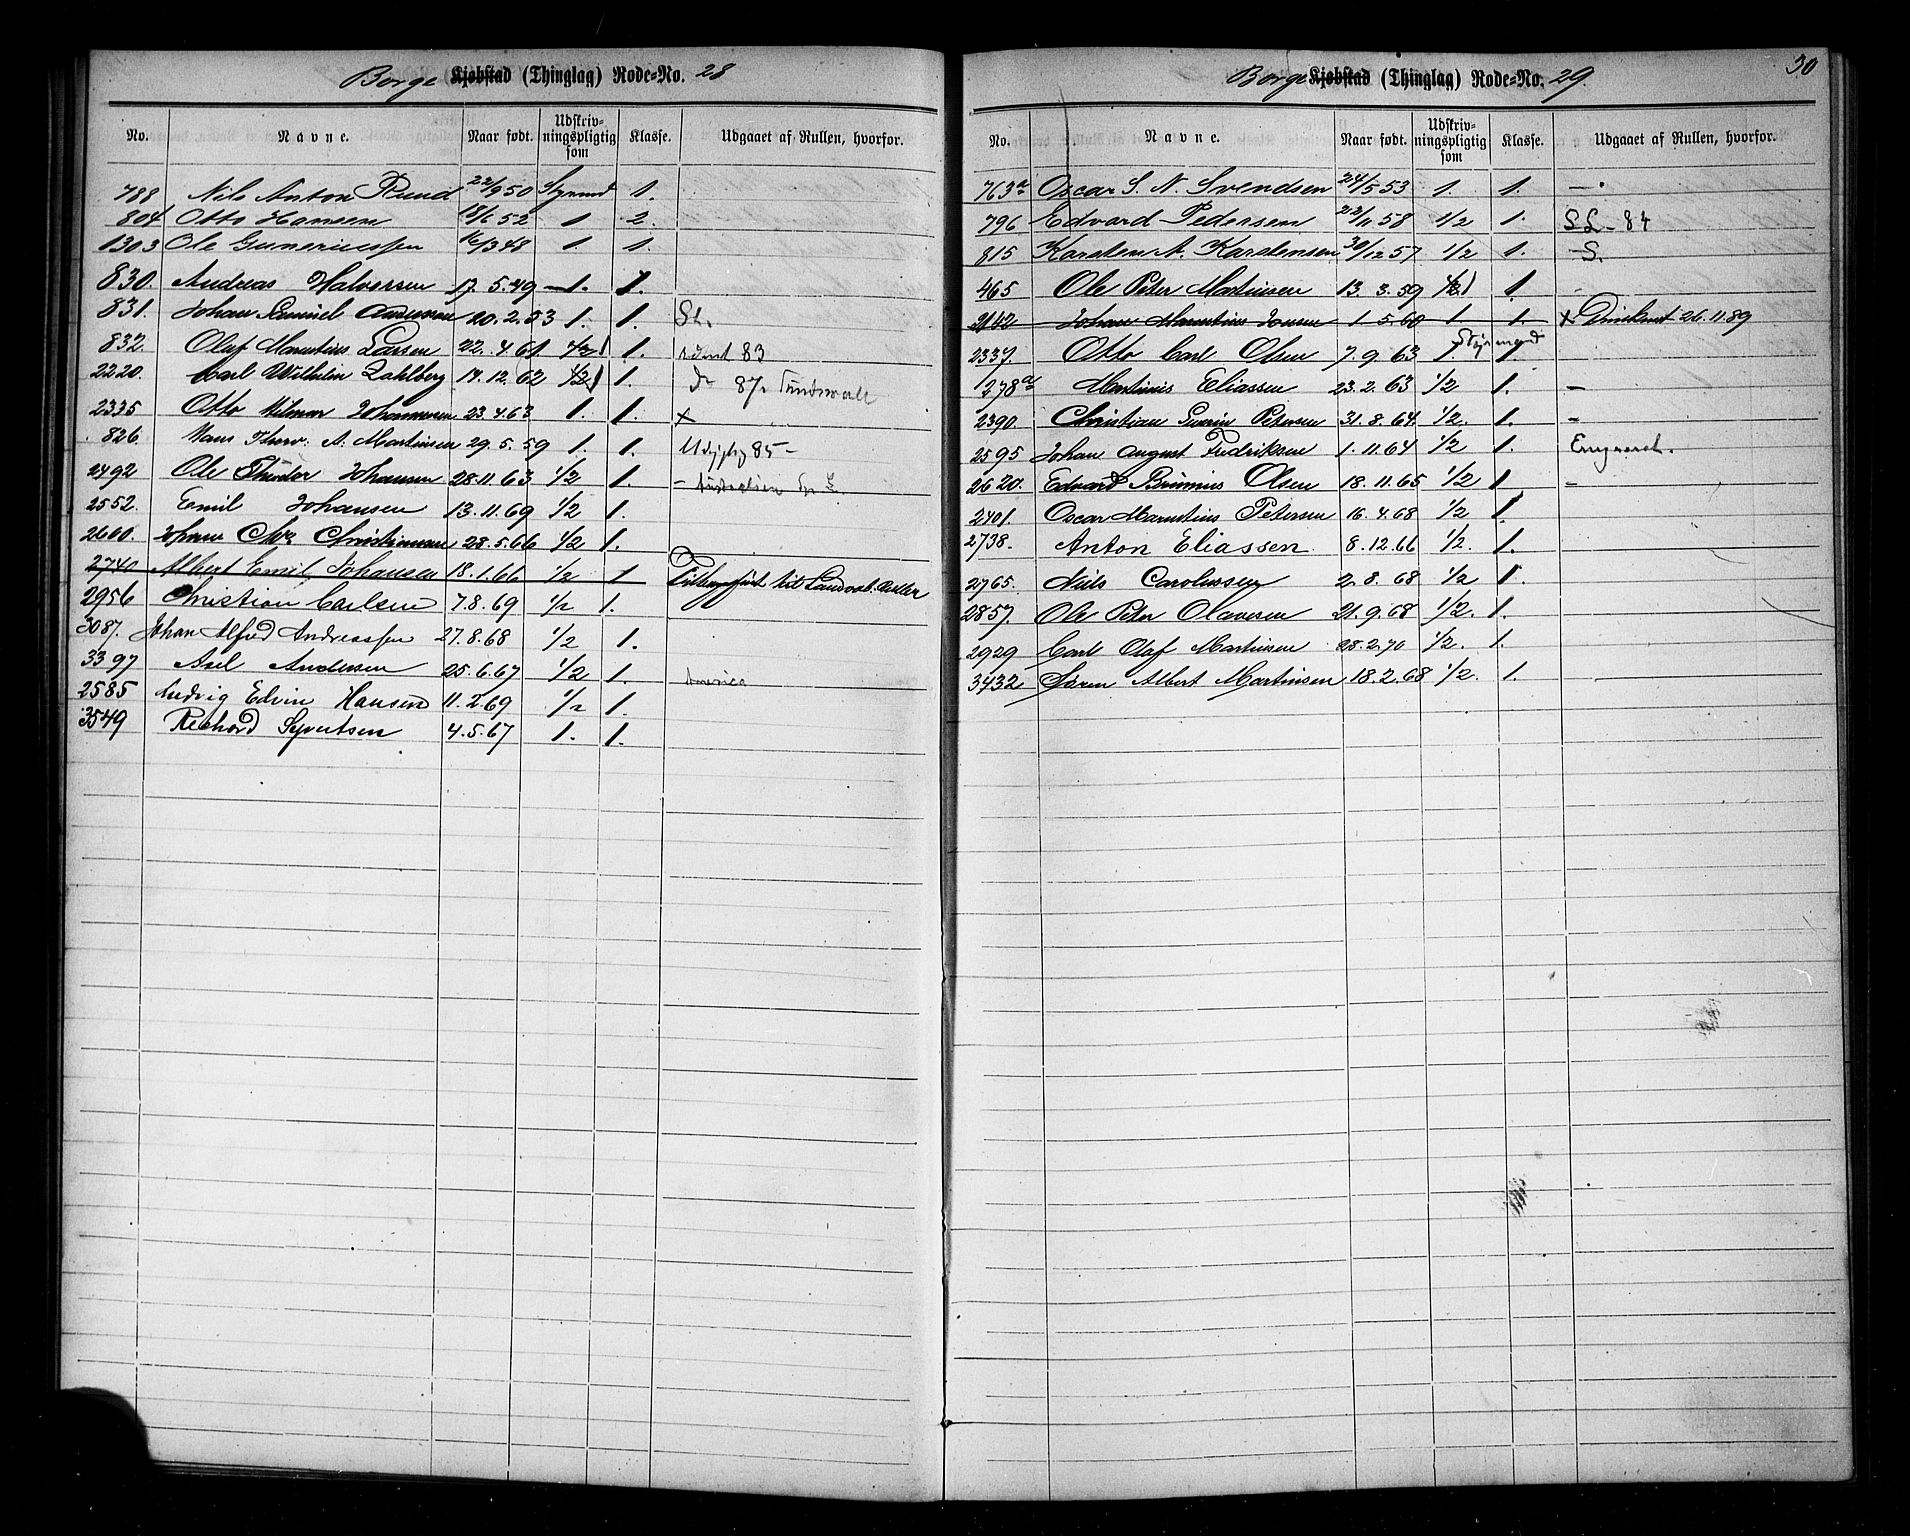 Borge Kjøbstad (Thinglag) Rode-No. 28
No. Navne. Naar født. Udskriv-ningspligtig som Klasse. Udgaaet af Rullen, hvorfor.
788 Nils Anton Rund 22/9 50 Styrmd 1.
804 Otto Hansen 18/6 52 1 2.
1303 Ole Gunerius 16/3 48 1. 1.
830. Andreas Halvorsen 17. 5. 49 1. 1.
831. Johan Samuel Andersen 20. 2. 53 1. 1. SL.
832. Olaf Marentius Larsen 22. 4. 61 1/2 1. rømt 83
2220. Carl Wilhelm Dahlberg 17. 12. 62 1/2 1. do 87
2335 Otto Hilmar Johannesen 23. 4. 63 1. 1. x
826. Hans Thorv. A. Martinsen 29. 5. 59 1. 1. 85 -
2492 Ole Theodor Johansen 28. 11. 63 1/2 1. - Australien
2552. Emil Johansen 13. 11. 69 1/2 1.
2600. Johan Chr. Christiansen 28. 5. 66 1/2 1.
2740 Albert Emil Johansen 18. 1. 66 1/2 1 til Landv.
2956 Christian Carlsen 7. 8. 69 1/2 1.
3087. Johan Alfred Andreassen 27. 8. 68 1/2 1.
3397 Axel Andersen 25. 6. 67 1/2 1. America
2585 Ludvig Edvin Hansen 11. 2. 69 1/2 1.
3549 Richard Syvertsen 4. 5. 67 1. 1.
30
Borge Kjøbstad (Thinglag) Rode-No. 29.
No. Navne. Naar født. Udskriv-ningspligtig som Klasse. Udgaaet af Rullen, hvorfor.
763a Oscar S. N. Svendsen 24/5 53 1. 1. -
796 Edvard Pedersen 22/11 58 1/2 1. SL - 84
815 Karsten A. Karstensen 30/12 57 1/2 1. S.
465 Ole Peter Martinsen 13. 3. 59 1/2 1
2142 Johan Marentius Jonsen 1. 5. 60 1 1. x Druknet 26.11.89
2337. Otto Carl Olsen 7. 9. 63 1. Styrmand 1
1278a Martinus Eliassen 23. 2. 63 1/2 1. -
2390. Christian Petersen 31. 8. 64. 1/2. 1. -
2595 Johan August Fredriksen 1. 11. 64 1/2 1.
2620. Edvard Olsen 18. 11. 65 1/2 1 -
2401. Oscar Marentius Petersen 16. 4. 68 1/2 1.
2738. Anton Eliassen 8. 12. 66 1/2. 1.
2765. Niels Carolussen 2. 8. 68 1/2 1.
2857. Ole Peter Olavesen 21. 9. 68 1/2. 1.
2929 Carl Olaf Martinsen 28. 2. 70 1/2. 1.
3432 Søren Albert Martinsen 18. 2. 68 1/2. 1.